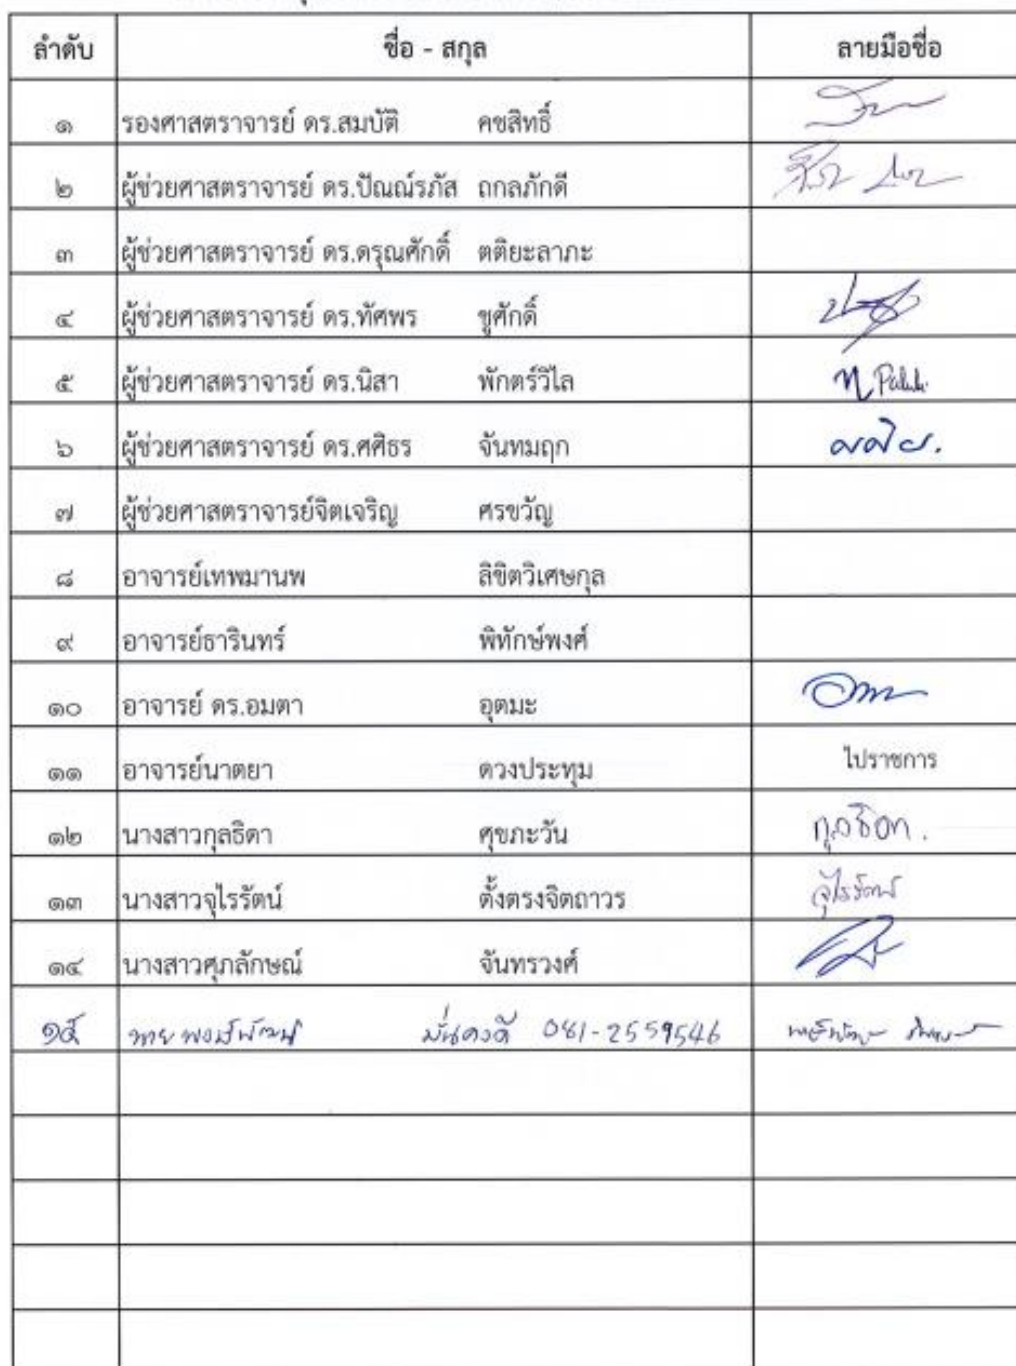 ลำดับ ชื่อ - สกุล ลายมือชื่อ
๑ รองศาสตราจารย์ ดร.สมบัติ คชสิทธิ์
๒ ผู้ช่วยศาสตราจารย์ ดร.ปัณณ์รภัส ถกลภักดี
๓ ผู้ช่วยศาสตราจารย์ ดร.ดรุณศักดิ์ ตติยะลาภะ
๔ ผู้ช่วยศาสตราจารย์ ดร.ทัศพร ชูศักดิ์
๕ ผู้ช่วยศาสตราจารย์ ดร.นิสา พักตร์วิไล
๖ ผู้ช่วยศาสตราจารย์ ดร.ศศิธร จันทมฤก
๗ ผู้ช่วยศาสตราจารย์จิตเจริญ ศรขวัญ
๘ อาจารย์เทพมานพ ลิขิตวิเศษกุล
๙ อาจารย์ธารินทร์ พิทักษ์พงศ์
๑๐ อาจารย์ ดร.อมตา อุตมะ
๑๑ อาจารย์นาตยา ดวงประทุม ไปราชการ
๑๒ นางสาวกุลธิดา ศุขภะวัน กุลธิดา.
๑๓ นางสาวจุไรรัตน์ ตั้งตรงจิตถาวร จุไรรัตน์
๑๔ นางสาวศุภลักษณ์ จันทรวงศ์
๑๕ นาย พงษ์พัฒน์ มั่นคงดี 081-2559546